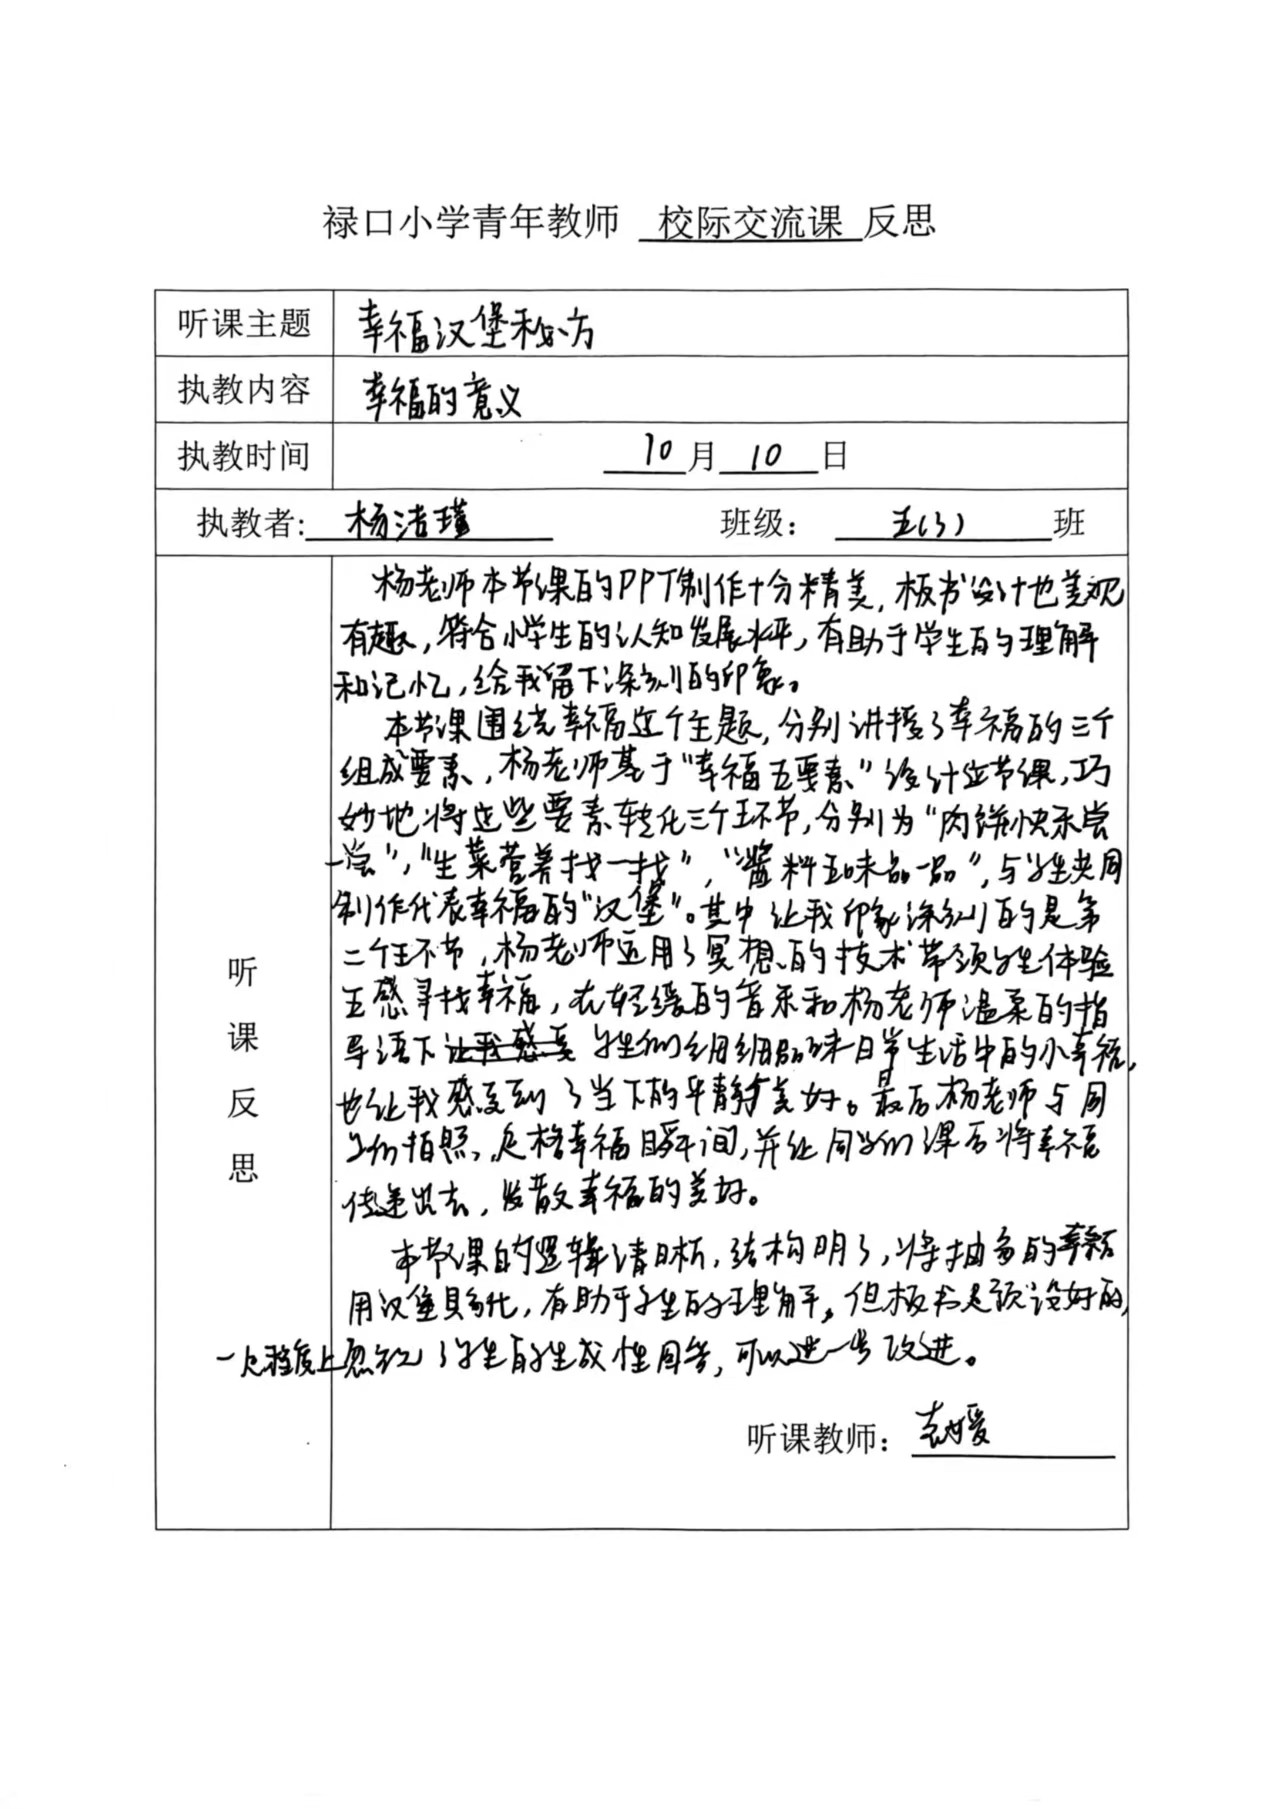 禄口小学青年教师 校际交流课 反思
听课主题 幸福汉堡秘方
执教内容 幸福的意义
执教时间 10月10日
执教者: 杨洁瑾 班级： 五(3) 班
听课反思
杨老师本节课的PPT制作十分精美，板书设计也美观
有趣，符合小学生的认知发展水平，有助于学生的理解
和记忆，给我留下深刻的印象。
本节课围绕幸福这个主题，分别讲授了幸福的三个
组成要素，杨老师基于“幸福五要素”设计这节课，巧
妙地将这些要素转化三个环节，分别为“肉饼快乐尝
一尝”，“生菜营养找一找”，“酱料五味品一品”，与学生共同
制作代表幸福的“汉堡”。其中让我印象深刻的是第
二个环节，杨老师运用了冥想的技术带领学生体验
五感寻找幸福，在轻缓的音乐和杨老师温柔的指
导语下让我感受学生们细细品味日常生活中的小幸福，
也让我感受到了当下的平静与美好。最后杨老师与同
学们拍照，定格幸福瞬间，并让同学们课后将幸福
传递出去，发散幸福的美好。
本节课的逻辑清晰，结构明了，将抽象的幸福
用汉堡具象化，有助于学生的理解。但板书是预设好的，
一定程度上忽视了学生的生成性回答，可以进一步改进。
听课教师： 袁媛